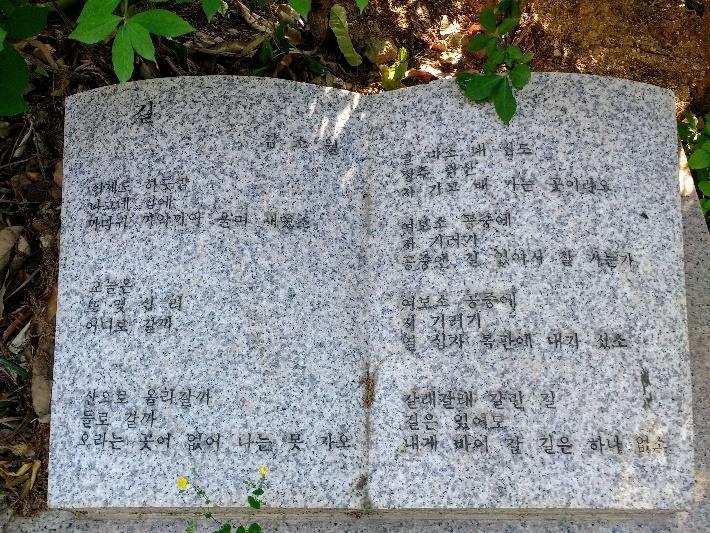 길
김소월
어제도 하룻밤
나그네 집에
까마귀 까악까악 울며 새웠소
오늘은
또 몇 십 리
어디로 갈까
산으로 올라갈까
들로 갈까
오라는 곳이 없어 나는 못 가오
말 마소 내 집도
정주 곽산
차 가고 배 가는 곳이라오
여보소 공중에
저 기러기
공중엔 길 있어서 잘 가는가
여보소 공중에
저 기러기
열 십자 복판에 내가 섰소
갈래갈래 갈린 길
길은 있어도
내게 바이 갈 길은 하나 없소